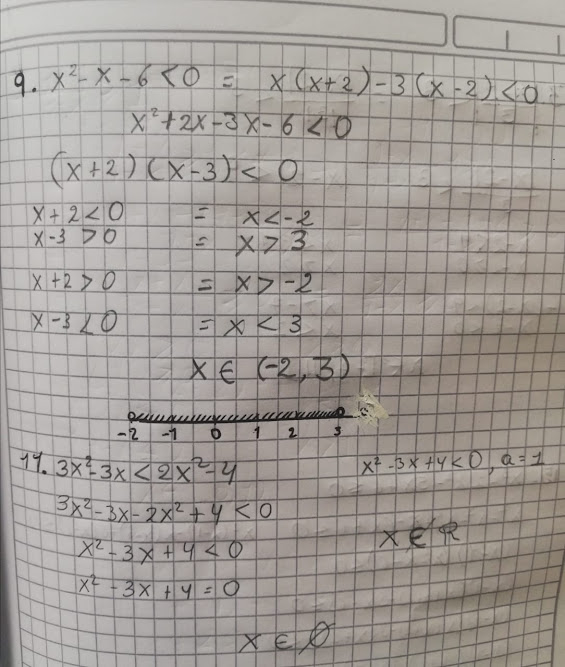 9. x²-x-6<0 = x(x+2)-3(x-2)<0
x²+2x-3x-6<0
(x+2)(x-3)<0
x+2<0 = x<-2
x-3>0 = x>3
x+2>0 = x>-2
x-3<0 = x<3
x∈(-2,3)
-2 -1 0 1 2 3
11. 3x²-3x<2x²-4 x²-3x+4<0, a=1
3x²-3x-2x²+4<0
x²-3x+4<0 x∉R
x²-3x+4=0
x∈∅